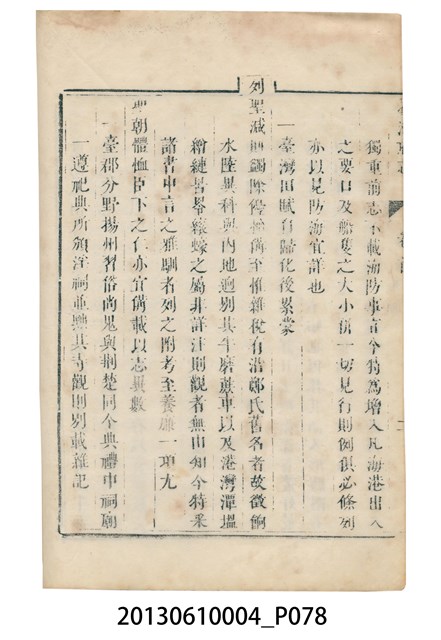 獨重前志不載海防事宜今特為增入凡海港出入
之要口及船隻之大小與一切見行則例俱必條列
亦以見防海宜詳也
一臺灣田賦自歸化後累蒙
列聖減則蠲除優恤備至惟雜稅有沿鄭氏舊名者故徵餉
水陸異科與內地迥別其牛磨蔗車以及港灣潭塭
繒縺罟䋄縗蠔之屬非詳注則觀者無由知今特采
諸書中言之雅馴者列之附考至養廉一項尤
聖朝體恤臣下之仁亦宜備載以志異數
一臺郡分野揚州習俗尚鬼與荊楚同今典禮中祠廟
一遵祀典所頒淫祠並無其寺觀則別載雜記
20130610004_P078